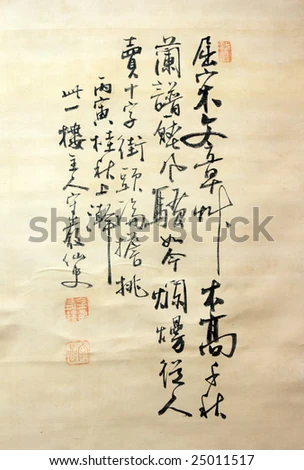 屈宋文章艸木高千秋
蘭譜壓風騷如今爛熳從人
賣十字街頭論擔挑
丙寅桂秋上澣
此一樓主人守仙史
shutterstock
www.shutterstock.com · 25011517